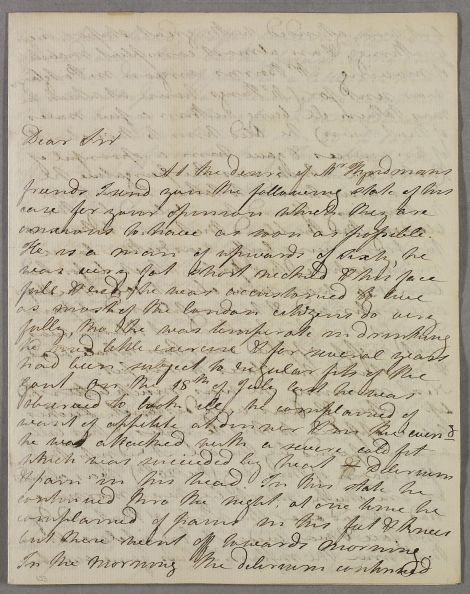 Dear Sir
At the desire of Mr Hyndmans
friends I send you the following state of his
case for your opinion which they are
anxious to have as soon as possible.
He is a man of upwards of sixty, he
was very fat short necked & his face
full & red, he was accustomed to live
as most of the London citizens do very
fully, tho' he was temperate in drinking
he used little exercise & for several years
had been subject to regular fits of the
gout. On the 18th of July last he was
observed to look ill, he complained of
want of appetite at dinner & in the eveng
he was attacked with a severe cold fit
which was succeeded by heat & Delirium
& pain in his head. In this state he
continued thro the night, at one time he
complained of pains in his feet & knees
but these went off towards morning.
In the morning the delirium continued